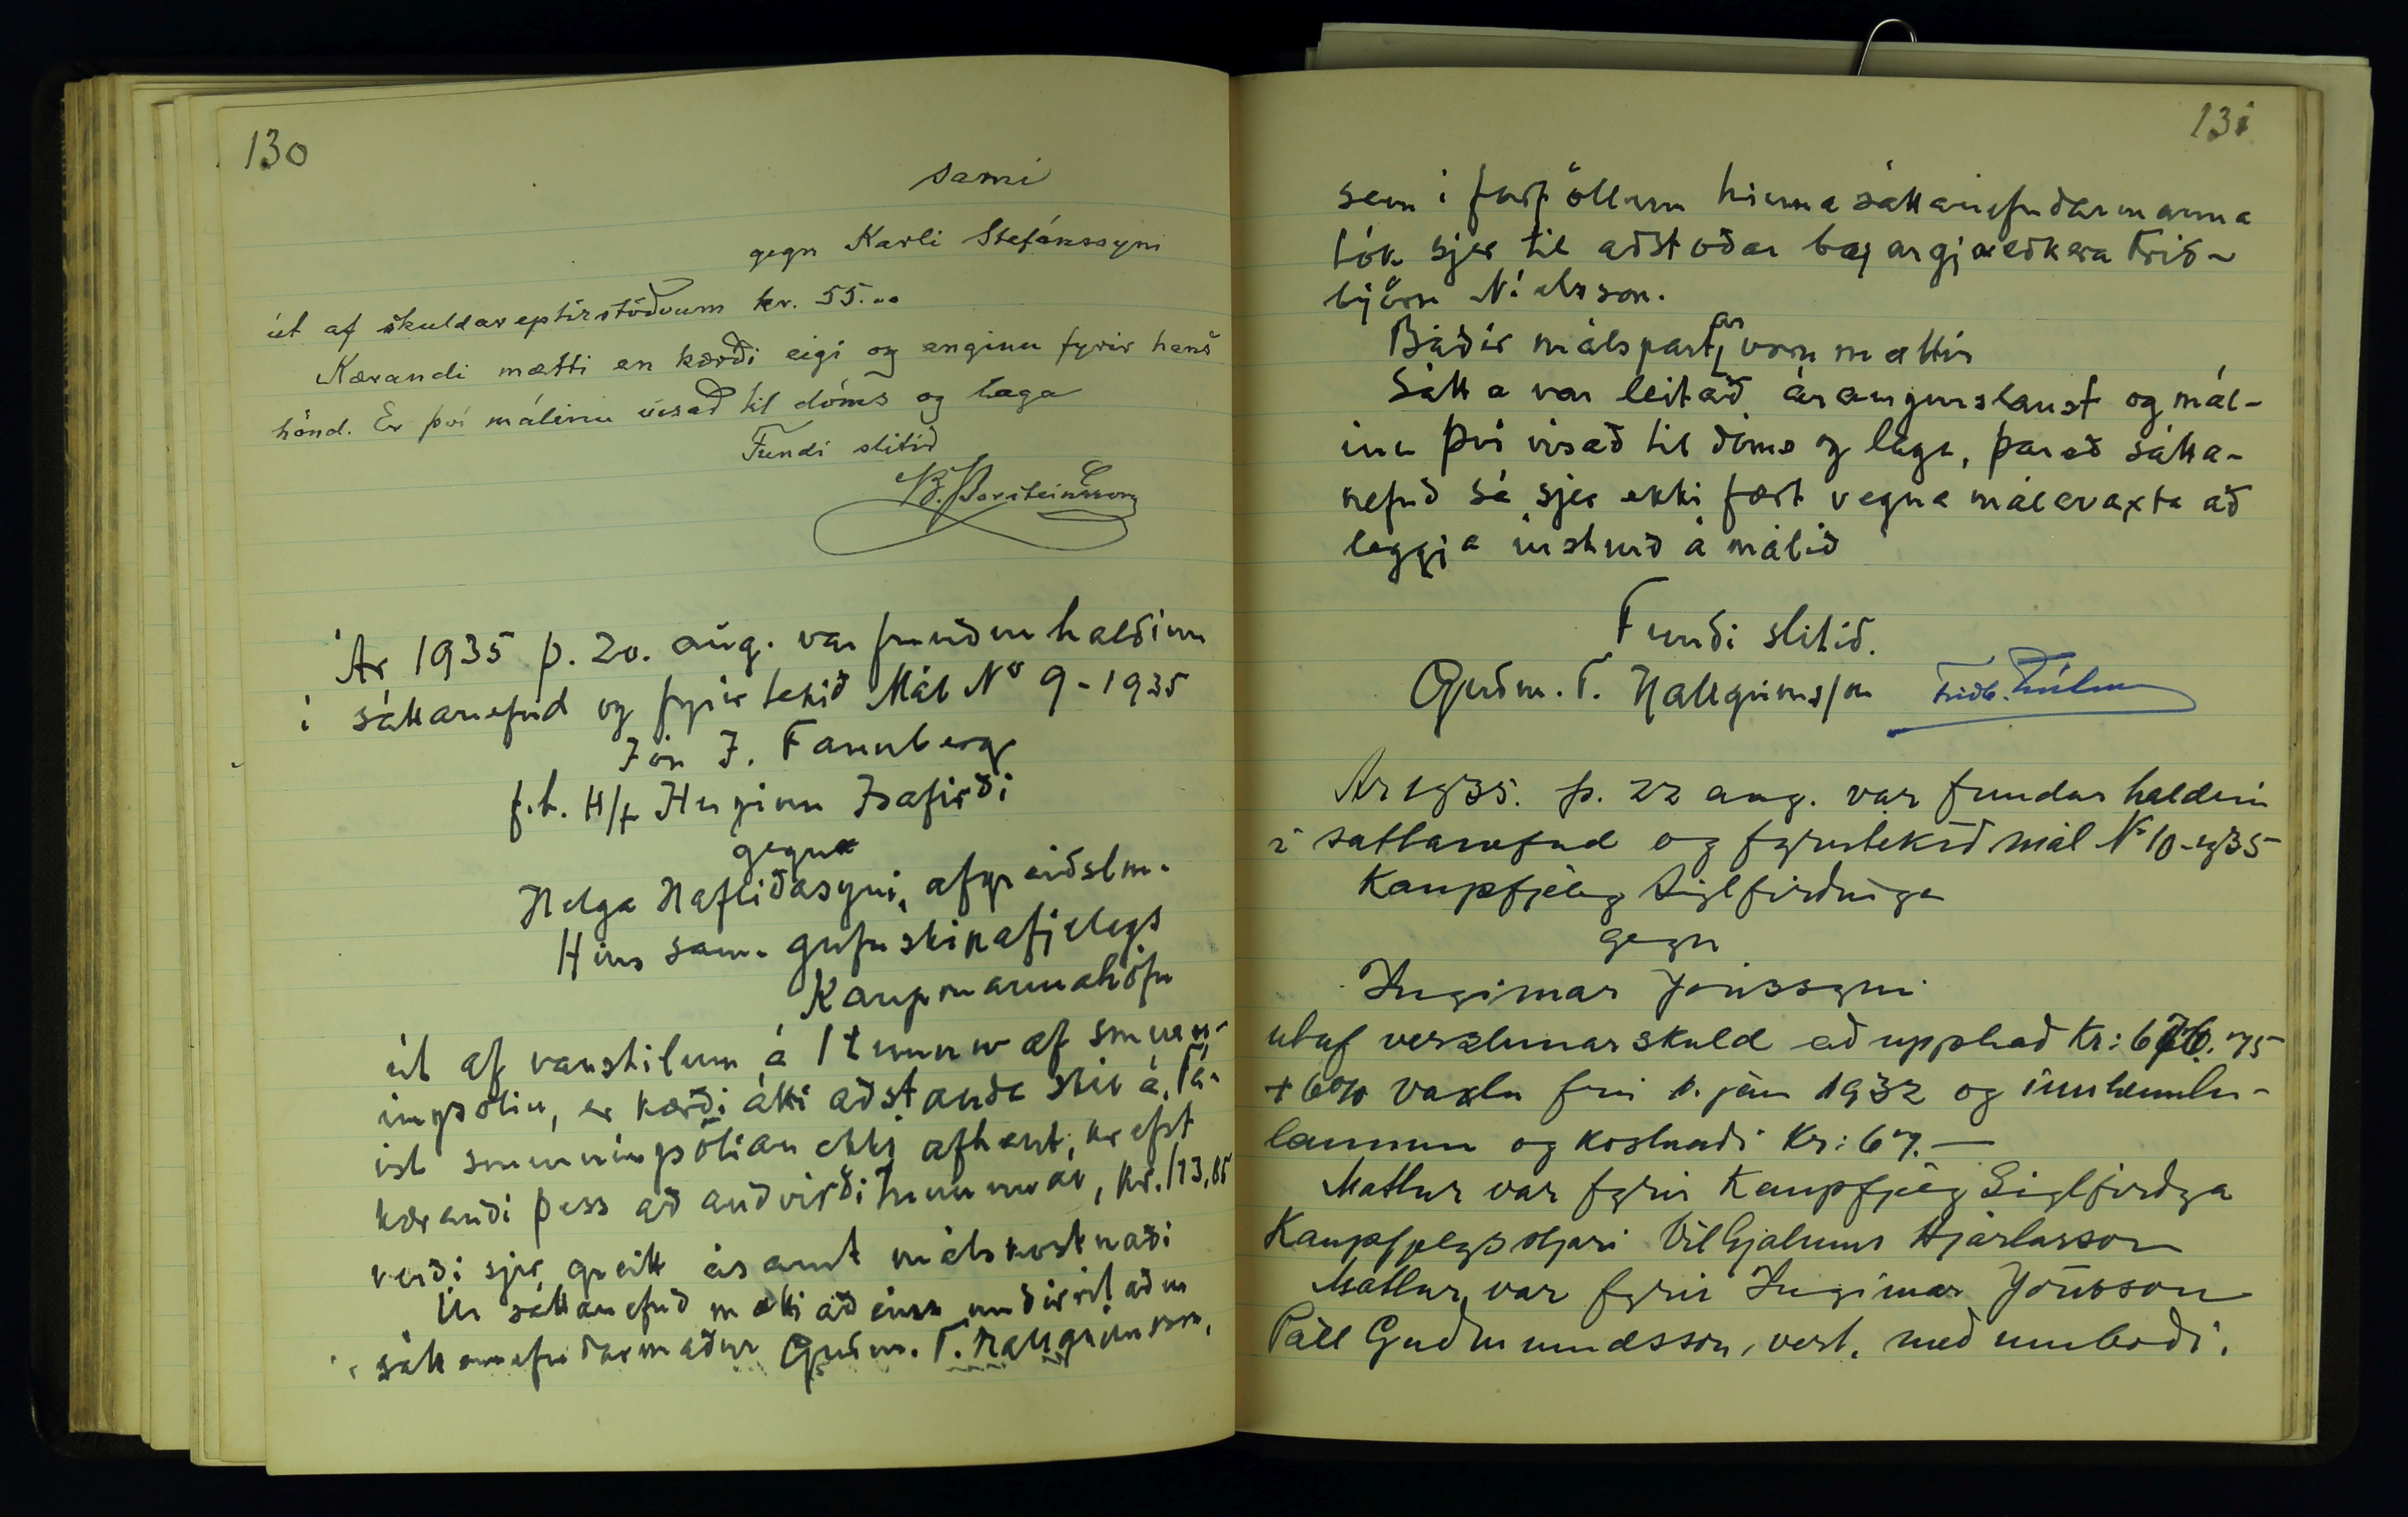 130
sami
gegn Karli Stefánssyni
út af skuldareptirstöðvum kr. 55.00
Kærandi mætti en kærði eigi og enginn fyrir hans
hönd. Er því málinu vísað til dóms og laga
Fundi slitið
B. Þorsteinsson
Ár 1935 þ. 20. aug. var fundur haldinn
í sáttanefnd og fyrir tekið Mál No 9-1935
Jón J. Fannberg
f.h. H/f Huginn Isafirði
gegn
Helga Hafliðasyni, afgreiðslm.
Hins sam. gufuskipafjelags
Kaupmannahöfn
út af vanskilum á 1 tunnu af smurn-
ingsolíu, er kærði átti að standa skil á. Fá-
ist smurningsolían ekki afhent, krefst
kærandi þess að andvirði tunnunnar, kr. 173,85
verði sjer greitt ásamt málskostnaði
Úr sáttanefnd mætti aðeins undirritaður
sáttanefndarmaður Guðm. T. Hallgrímsson,
131
sem í forföllum hinna sáttanefndarmanna
tók sjer til aðstoðar bæjargjaldkera Frið-
björn Níelsson.
Báðir málspartar voru mættir
Sátta var leitað árangurslaust og mál-
inu því vísað til dóms og laga, þar eð sátta-
nefnd sá sjer ekki fært vegna málavaxta að
leggja úrskurð á málið
Fundi slitið.
Guðm. T. Hallgrímsson Friðb. Níelsson
Ár 1935. þ. 22 aug. var fundur haldin
í sattanefnd og fyrirtekið mál No 10-1935
Kaupfjélag Siglfirðinga
gegn
Ingimar Jónssyni
utaf verzlunarskuld að upphað Kr: 676.75
+ 6% vaxtu frá 1. jan 1932 og innheimtu-
launum og kostnaði Kr: 67.—
Mættur var fyrir Kaupfjélag Siglfirðga
Kaupfjelgsstjóri Vilhjalmur Hjartarson
Mættur var fyrir Ingimar Jónsson
Páll Guðmundsson, verk. með umboði.